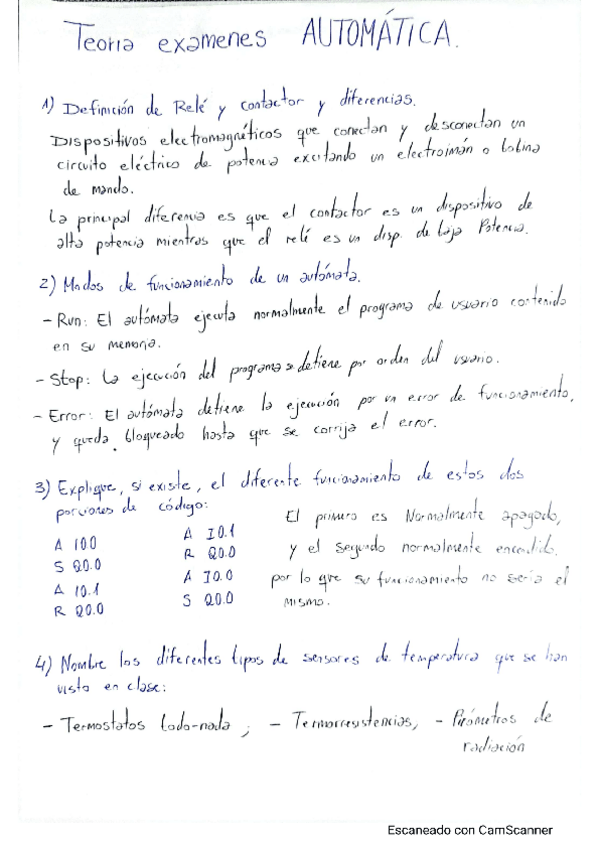 Teoria examenes AUTOMÁTICA.
1) Definición de Relé y contactor y diferencias.
Dispositivos electromagnéticos que conectan y desconectan un
circuito eléctrico de potencia excitando un electroimán o bobina
de mando.
La principal diferencia es que el contactor es un dispositivo de
alta potencia mientras que el relé es un disp. de baja Potencia.
2) Modos de funcionamiento de un autómata.
- Run: El autómata ejecuta normalmente el programa de usuario contenido
en su memoria.
- Stop: La ejecución del programa se detiene por orden del usuario.
- Error: El autómata detiene la ejecución por un error de funcionamiento,
y queda bloqueado hasta que se corrija el error.
3) Explique, si existe, el diferente funcionamiento de estos dos
porciones de código:
A I0.0
S Q0.0
A I0.1
R Q0.0
A I0.1
R Q0.0
A I0.0
S Q0.0
El primero es Normalmente apagado,
y el segundo normalmente encendido.
por lo que su funcionamiento no sería el
mismo.
4) Nombre los diferentes tipos de sensores de temperatura que se han
visto en clase:
- Termostatos todo-nada; - Termorresistencias, - Pirómetros de
radiación
Escaneado con CamScanner